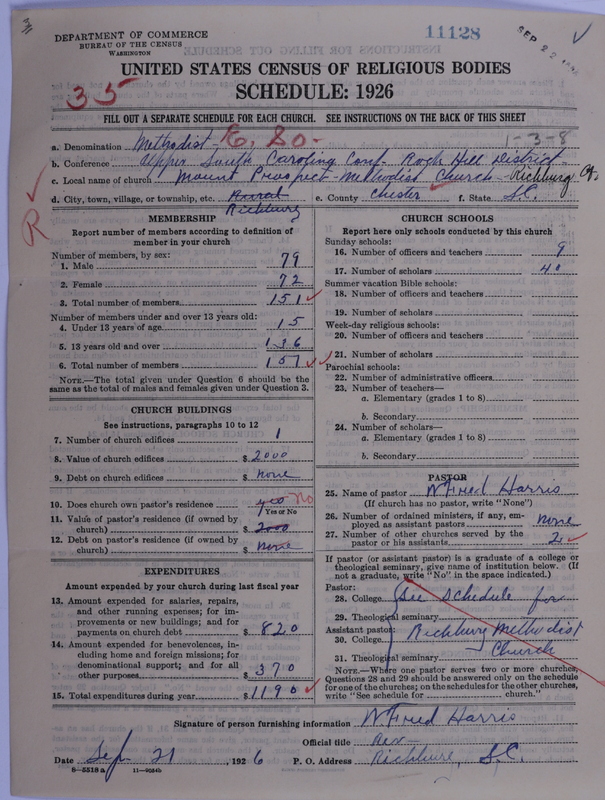 DEPARTMENT OF COMMERCE
BUREAU OF THE CENSUS
WASHINGTON
11128
SEP 22
UNITED STATES CENSUS OF RELIGIOUS BODIES
SCHEDULE: 1926
35
FILL OUT A SEPARATE SCHEDULE FOR EACH CHURCH. SEE INSTRUCTIONS ON THE BACK OF THIS SHEET
a. Denomination Methodist E. So. 1-3-8
b. Conference Upper South Carolina Conf. Rock Hill District
c. Local name of church Mount Prospect Methodist Church Richburg Ct.
d. City, town, village, or township, etc. Rural Richburg e. County Chester f. State S.C.
R
MEMBERSHIP
Report number of members according to definition of member in your church
Number of members, by sex:
1. Male 79
2. Female 72
3. Total number of members 151
Number of members under and over 13 years old:
4. Under 13 years of age 15
5. 13 years old and over 136
6. Total number of members 151
NOTE.—The total given under Question 6 should be the same as the total of males and females given under Question 3.
CHURCH BUILDINGS
See instructions, paragraphs 10 to 12
7. Number of church edifices 1
8. Value of church edifices $ 2000
9. Debt on church edifices $ none
10. Does church own pastor's residence yes No
Yes or No
11. Value of pastor's residence (if owned by church) $ 2000
12. Debt on pastor's residence (if owned by church) $ none
EXPENDITURES
Amount expended by your church during last fiscal year
13. Amount expended for salaries, repairs, and other running expenses; for improvements or new buildings; and for payments on church debt $ 820
14. Amount expended for benevolences, including home and foreign missions; for denominational support; and for all other purposes $ 370
15. Total expenditures during year $ 1190
CHURCH SCHOOLS
Report here only schools conducted by this church
Sunday schools:
16. Number of officers and teachers 9
17. Number of scholars 40
Summer vacation Bible schools:
18. Number of officers and teachers
19. Number of scholars
Week-day religious schools:
20. Number of officers and teachers
21. Number of scholars
Parochial schools:
22. Number of administrative officers
23. Number of teachers—
a. Elementary (grades 1 to 8)
b. Secondary
24. Number of scholars—
a. Elementary (grades 1 to 8)
b. Secondary
PASTOR
25. Name of pastor W Fred Harris
(If church has no pastor, write "None")
26. Number of ordained ministers, if any, employed as assistant pastors none
27. Number of other churches served by the pastor or his assistants 2
If pastor (or assistant pastor) is a graduate of a college or theological seminary, give name of institution below. (If not a graduate, write "No" in the space indicated.)
Pastor:
28. College See schedule for
29. Theological seminary
Assistant pastor: Richburg Methodist
30. College Church
31. Theological seminary
NOTE.—Where one pastor serves two or more churches, Questions 28 and 29 should be answered only on the schedule for one of the churches; on the schedules for the other churches, write "See schedule for church."
Signature of person furnishing information W Fred Harris
Official title Rev
Date Sep. 21, 1926 P. O. Address Richburg, S.C.
8—5518 a 11—9054b